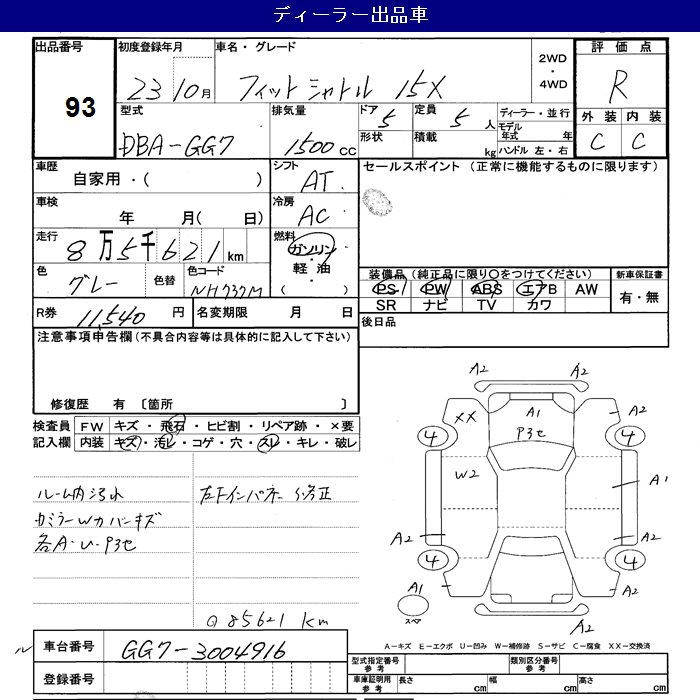 ディーラー出品車
出品番号
93
初度登録年月
23 10月
車名・グレード
フィットシャトル 15X
2WD
・
4WD
評価点
R
外装 内装
C C
型式
DBA-GG7
排気量
1500 cc
ドア 5
形状
定員 5 人
積載 kg
ディーラー・並行
モデル年式 年
ハンドル 左・右
車歴
自家用・( )
シフト
AT
セールスポイント (正常に機能するものに限ります)
車検
年 月( 日)
冷房
AC
走行
8万5千621km
燃料
ガソリン
・
軽油
( )
色
グレー
色替
色コード
NH737M
装備品 (純正品に限り○をつけてください)
PS PW ABS エアB AW
SR ナビ TV カワ
新車保証書
有・無
R券 11,540 円
名変期限 月 日
後日品
注意事項申告欄 (不具合内容等は具体的に記入して下さい)
修復歴 有 〔箇所 〕
検査員記入欄
FW キズ・飛石・ヒビ割・リペア跡・×要
内装 キズ・汚レ・コゲ・穴・スレ・キレ・破レ
ルーム内汚れ
各A・U・P3セ
修正
85621 km
A2 A2
XX A1 A2
P3セ
4 4
W2 A1
A2 A2
4 4
A1 A2
スペア
A2
A-キズ E-エクボ U-凹み W-補修跡 S-サビ C-腐食 XX-交換済
車台番号
GG7-3004916
登録番号
型式指定番号
参考
類別区分番号
参考
車庫証明用
参考
長さ cm
幅 cm
高さ cm